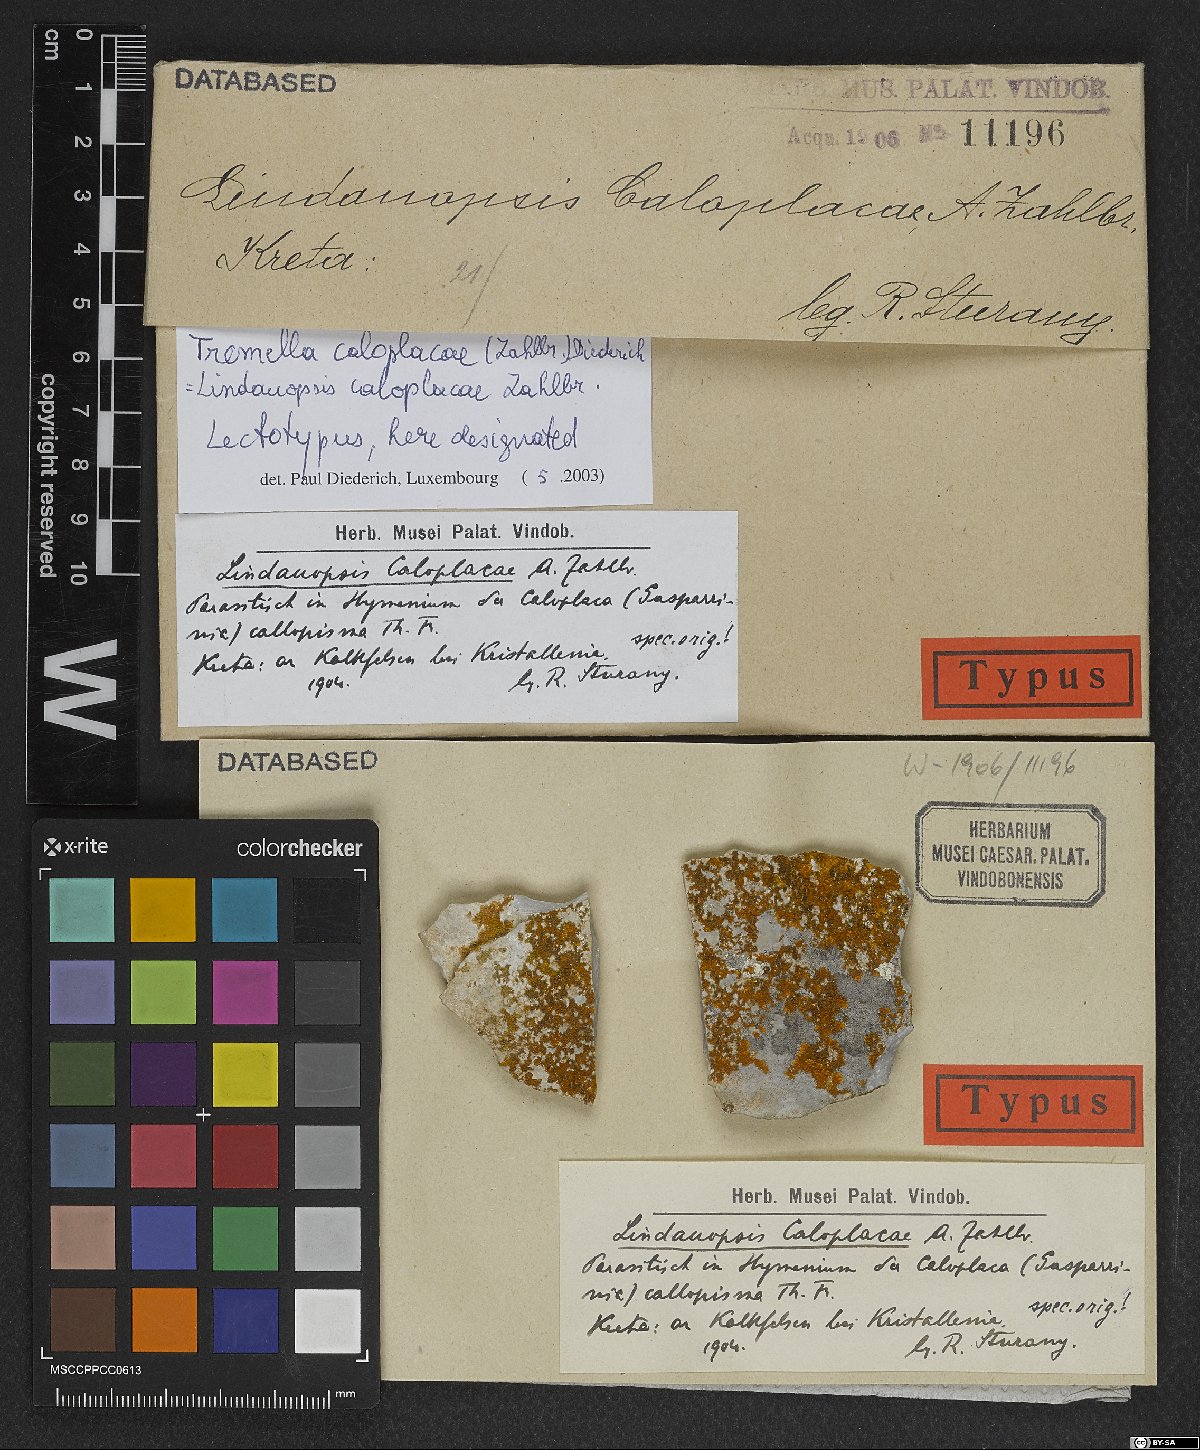 cm 0 1 2 3 4 5 6 7 8 9 10
copyright reserved
W
DATABASED
MUS. PALAT. VINDOB.
Acqu. 1906 No 11196
Lindauopsis Caloplacae, A. Zahlbr.
Kreta:
21/
leg. R. Sturany.
Tremella caloplacae (Zahlbr.) Diederich
= Lindauopsis caloplacae Zahlbr.
Lectotypus, here designated
det. Paul Diederich, Luxembourg ( 5 .2003)
Herb. Musei Palat. Vindob.
Lindauopsis Caloplacae A. Zahlbr.
Parasitisch im Hymenium der Caloplaca (Gasparri-
nia) callopisma Th. Fr.
spec. orig.!
Kreta: an Kalkfelsen bei Kristallenia.
1904. lg. R. Sturany.
Typus
DATABASED
W-1906/11196
HERBARIUM
MUSEI CAESAR. PALAT.
VINDOBONENSIS
Typus
Herb. Musei Palat. Vindob.
Lindauopsis Caloplacae A. Zahlbr.
Parasitisch im Hymenium der Caloplaca (Gasparri-
nia) callopisma Th. Fr.
spec. orig.!
Kreta: an Kalkfelsen bei Kristallenia.
1904. lg. R. Sturany.
x-rite colorchecker
MSCCPPCC0613
mm
BY-SA